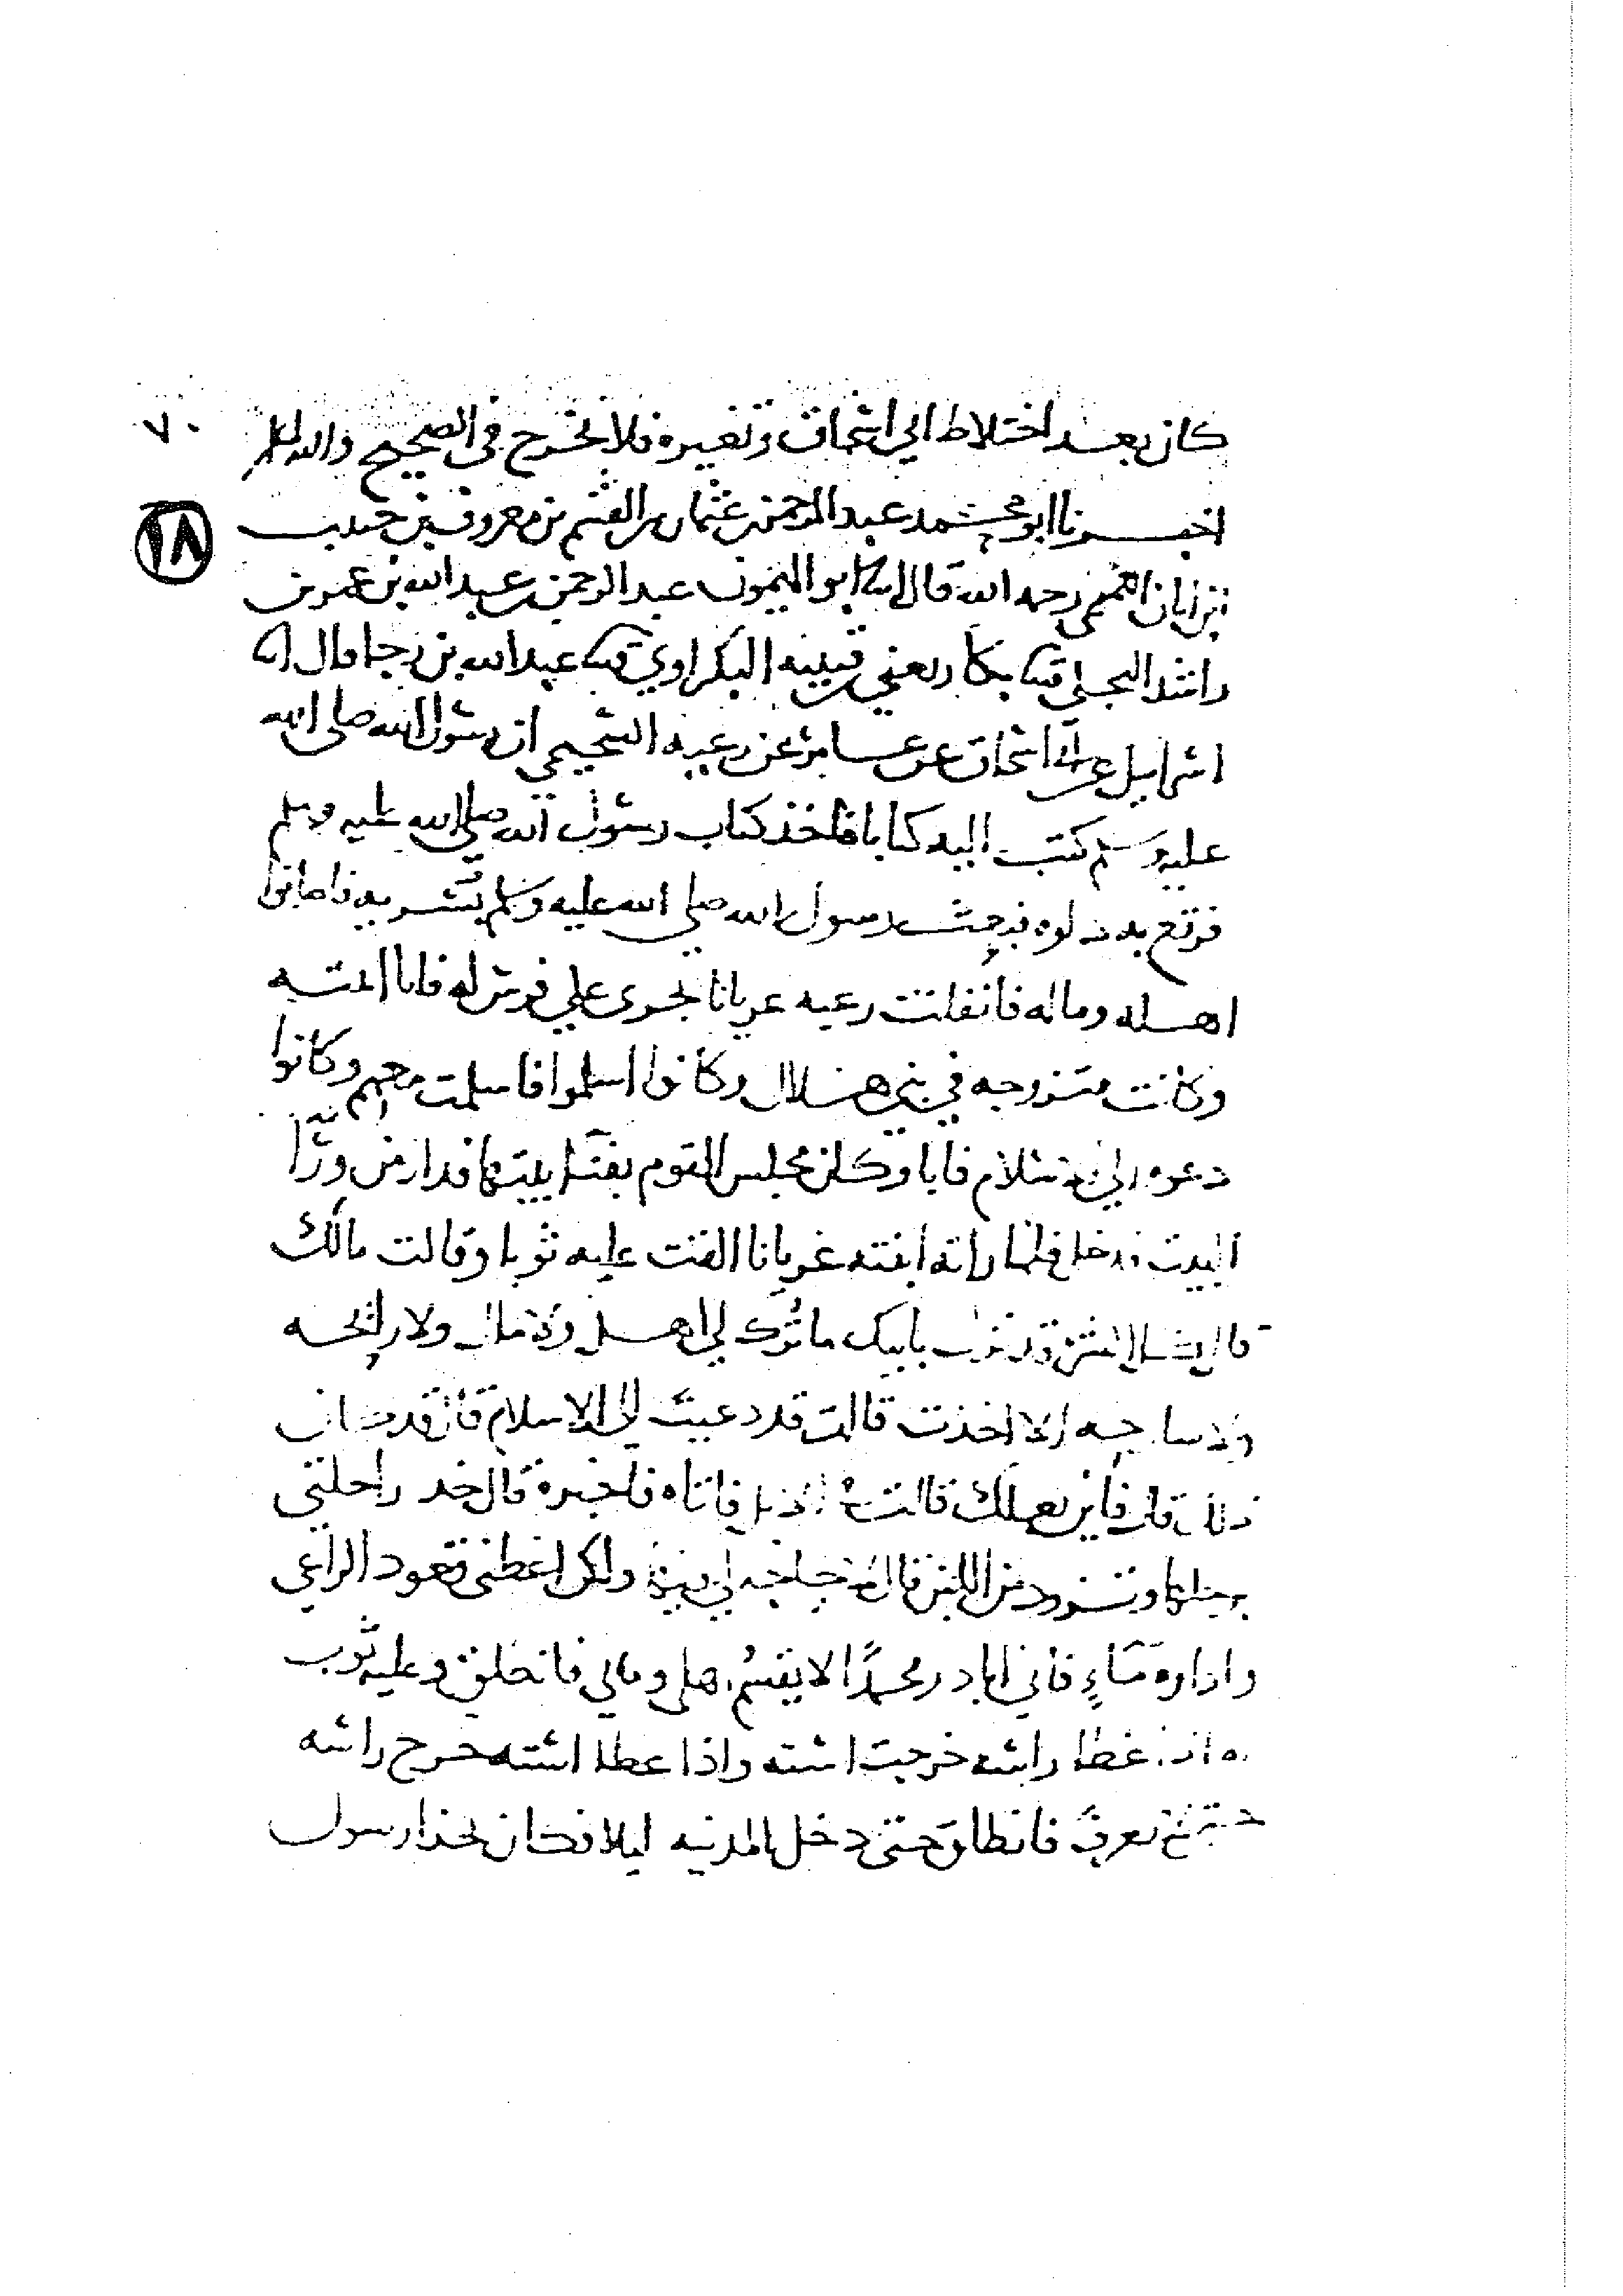 ٧٠
كان بعد اختلاط ابي اسحاق وتغيره فلا يخرج في الصحيح والله اعلم
١٨
اخبرنا ابو محمد عبد الرحمن بن عثمان بن القسم بن معروف بن حبيب
بن ابان التميمي رحمه الله قال ابو الميمون عبد الرحمن بن عبد الله بن عمر بن
راشد البجلي بكار يعني بن قتيبه البكراوي عبد الله بن رجا قال
اسرايل عن ابي اسحاق عن عامر عن رعيه السحيمي ان رسول الله صلى الله
عليه وسلم كتب اليه كتابا فاخذ كتاب رسول الله صلى الله عليه وسلم
فرقع به دلوه فبعث رسول الله صلى الله عليه وسلم بسريه فاصابوا
اهله وماله فانفلت رعيه عريانا يجرى على فرس له فاتا ابنته
وكانت متزوجه في بني هلال وكانوا اسلموا فاسلمت معهم وكانوا
دعوه الى الاسلام فابا وكان مجلس القوم بفنا بيتها فدار من ورا
البيت فدخل فلما راته ابنته عريانا القت عليه ثوبا وقالت مالك
قال كل الشر قد نزل بابيك ما ترك لي اهل ولا مال ولا رايحه
ولا سارحه الا اخذت قالت قد دعيت الى الاسلام قال قد كان
ذلك قال فاين بعلك قالت في الابل فاتاه فاخبره قال خذ راحلتي
برحلها وتزود من اللبن قال لا حاجه لي فيه ولكن اعطني قعود الراعي
واداوة ماء فاني ابادر محمدا لا يقسم اهلي ومالي فانطلق وعليه ثوب
اذا غطا راسه خرجت استه واذا غطا استه خرج راسه
يعرف فانطلق حتى دخل المدينه ليلا فكان بحذا رسول